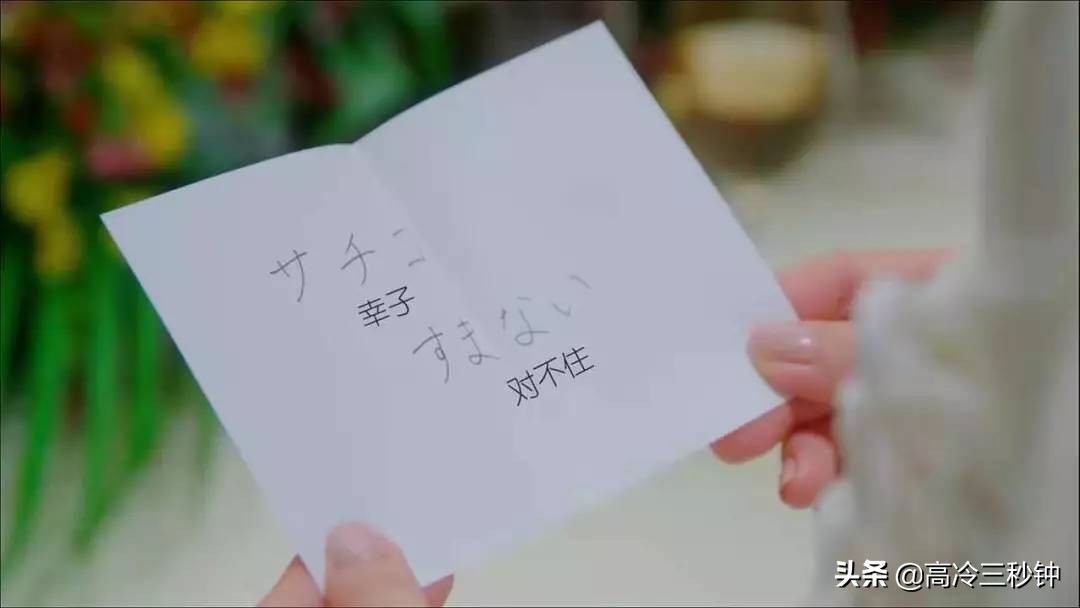 サチコ
幸子
すまない
对不住
头条 @高冷三秒钟